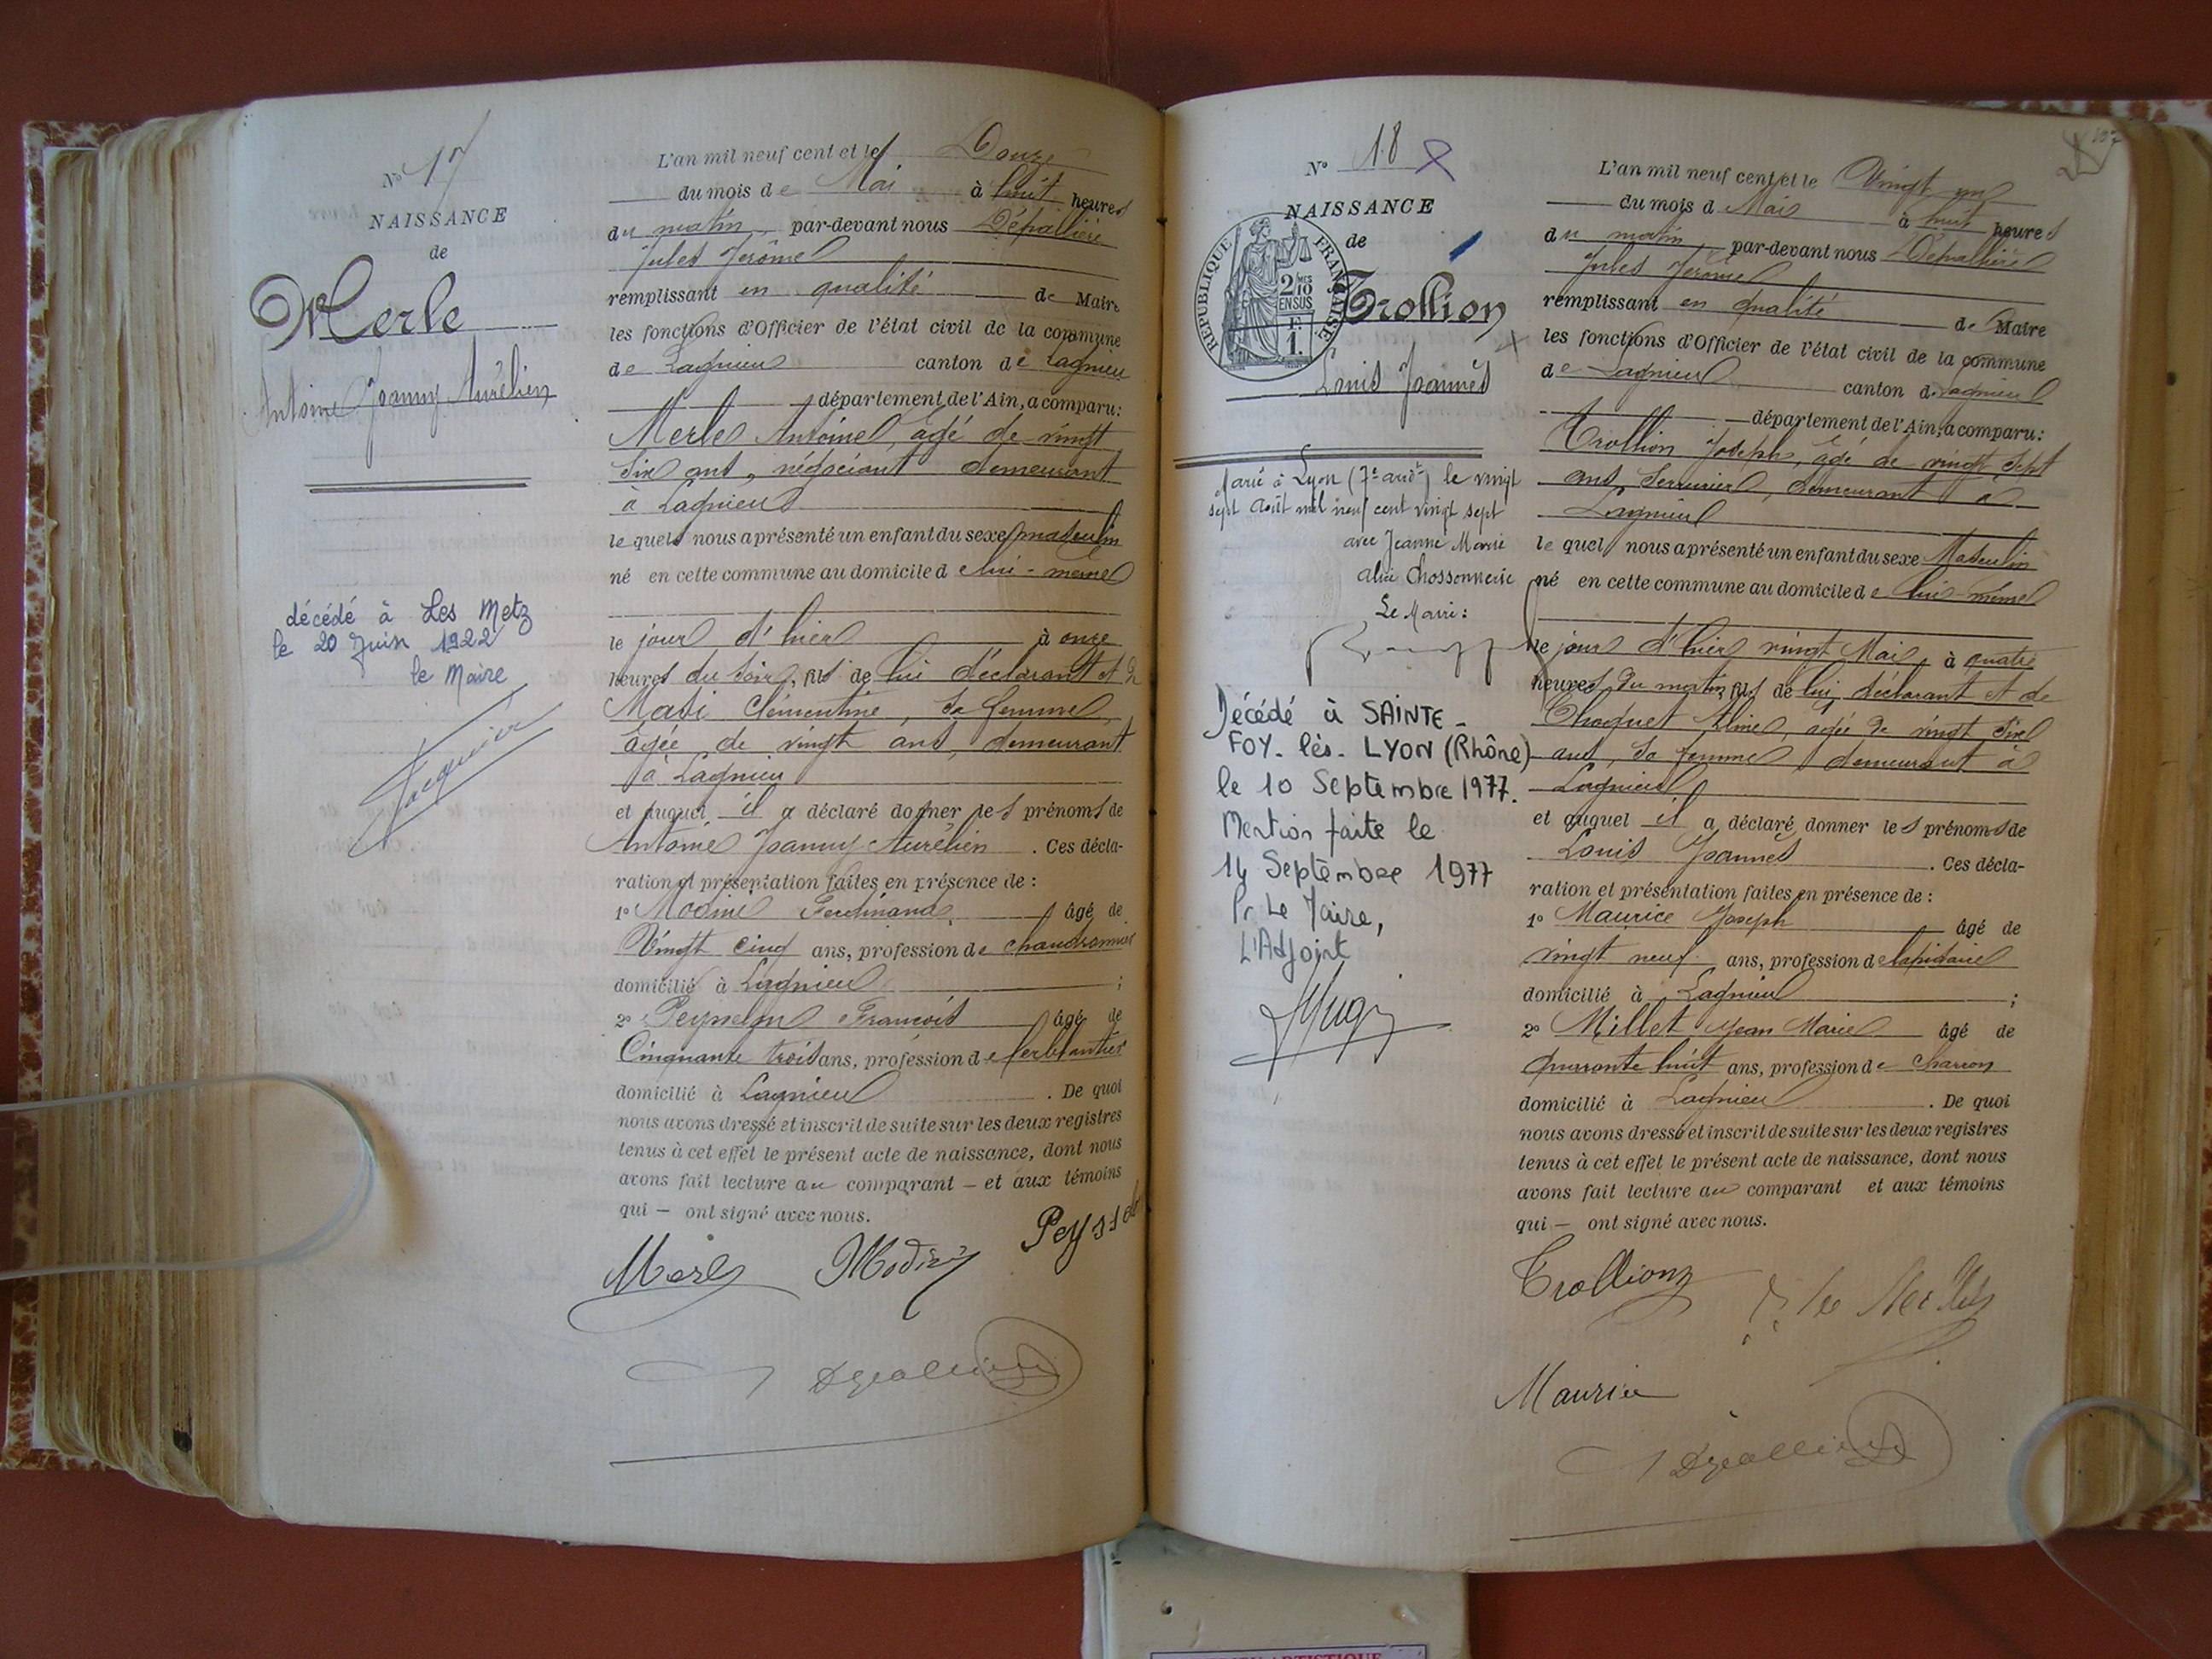 Nº 17
NAISSANCE
de
Merle
Antoine Joanny Aurélien
décédé à Les Metz
le 20 Juin 1922
le Maire
L'an mil neuf cent et le Douze
du mois de Mai à huit heures
du matin, par-devant nous Dépallière
Jules Jérôme
remplissant en qualité de Maire
les fonctions d'Officier de l'état civil de la commune
de Lagnieu canton de Lagnieu
département de l'Ain, a comparu:
Merle Antoine, âgé de vingt
six ans, négociant demeurant
à Lagnieu
lequel nous a présenté un enfant du sexe masculin
né en cette commune au domicile de lui-même
le jour d'hier à onze
heures du soir, fils de lui déclarant et de
Clémentine, sa femme
âgée de vingt ans, demeurant
à Lagnieu
et auquel il a déclaré donner les prénoms de
Antoine Joanny Aurélien. Ces décla-
ration et présentation faites en présence de :
1º Ferdinand âgé de
Vingt cinq ans, profession de chaudronnier
domicilié à Lagnieu ;
2º François âgé de
Cinquante trois ans, profession de ferblantier
domicilié à Lagnieu. De quoi
nous avons dressé et inscrit de suite sur les deux registres
tenus à cet effet le présent acte de naissance, dont nous
avons fait lecture au comparant – et aux témoins
qui – ont signé avec nous.
Merle
Nº 18
NAISSANCE
de
RÉPUBLIQUE FRANÇAISE
2/10 EN SUS
F. 1.
Trollion
Louis Joannès
Marié à Lyon (7e arrdt) le vingt
sept Août mil neuf cent vingt sept
avec Jeanne Marie
Alice Chossonnerie
Le Maire:
Décédé à SAINTE-
FOY-lès-LYON (Rhône)
le 10 Septembre 1977.
Mention faite le
14 Septembre 1977
Pr Le Maire,
L'Adjoint
L'an mil neuf cent et le Vingt un
du mois de Mai à huit heures
du matin par-devant nous Dépallière
Jules Jérôme
remplissant en qualité de Maire
les fonctions d'Officier de l'état civil de la commune
de Lagnieu canton de Lagnieu
département de l'Ain, a comparu:
Trollion Joseph, âgé de vingt sept
ans, Serrurier, demeurant à
Lagnieu
lequel nous a présenté un enfant du sexe Masculin
né en cette commune au domicile de lui-même
le jour d'hier vingt Mai, à quatre
heures du matin, fils de lui déclarant et de
Choquet Aline, âgée de vingt six
ans, sa femme demeurant à
Lagnieu
et auquel il a déclaré donner les prénoms de
Louis Joannès. Ces décla-
ration et présentation faites en présence de :
1º Maurice Joseph âgé de
vingt neuf ans, profession de lapidaire
domicilié à Lagnieu ;
2º Millet Jean Marie âgé de
quarante huit ans, profession de charron
domicilié à Lagnieu. De quoi
nous avons dressé et inscrit de suite sur les deux registres
tenus à cet effet le présent acte de naissance, dont nous
avons fait lecture au comparant et aux témoins
qui – ont signé avec nous.
Trollion
Maurice